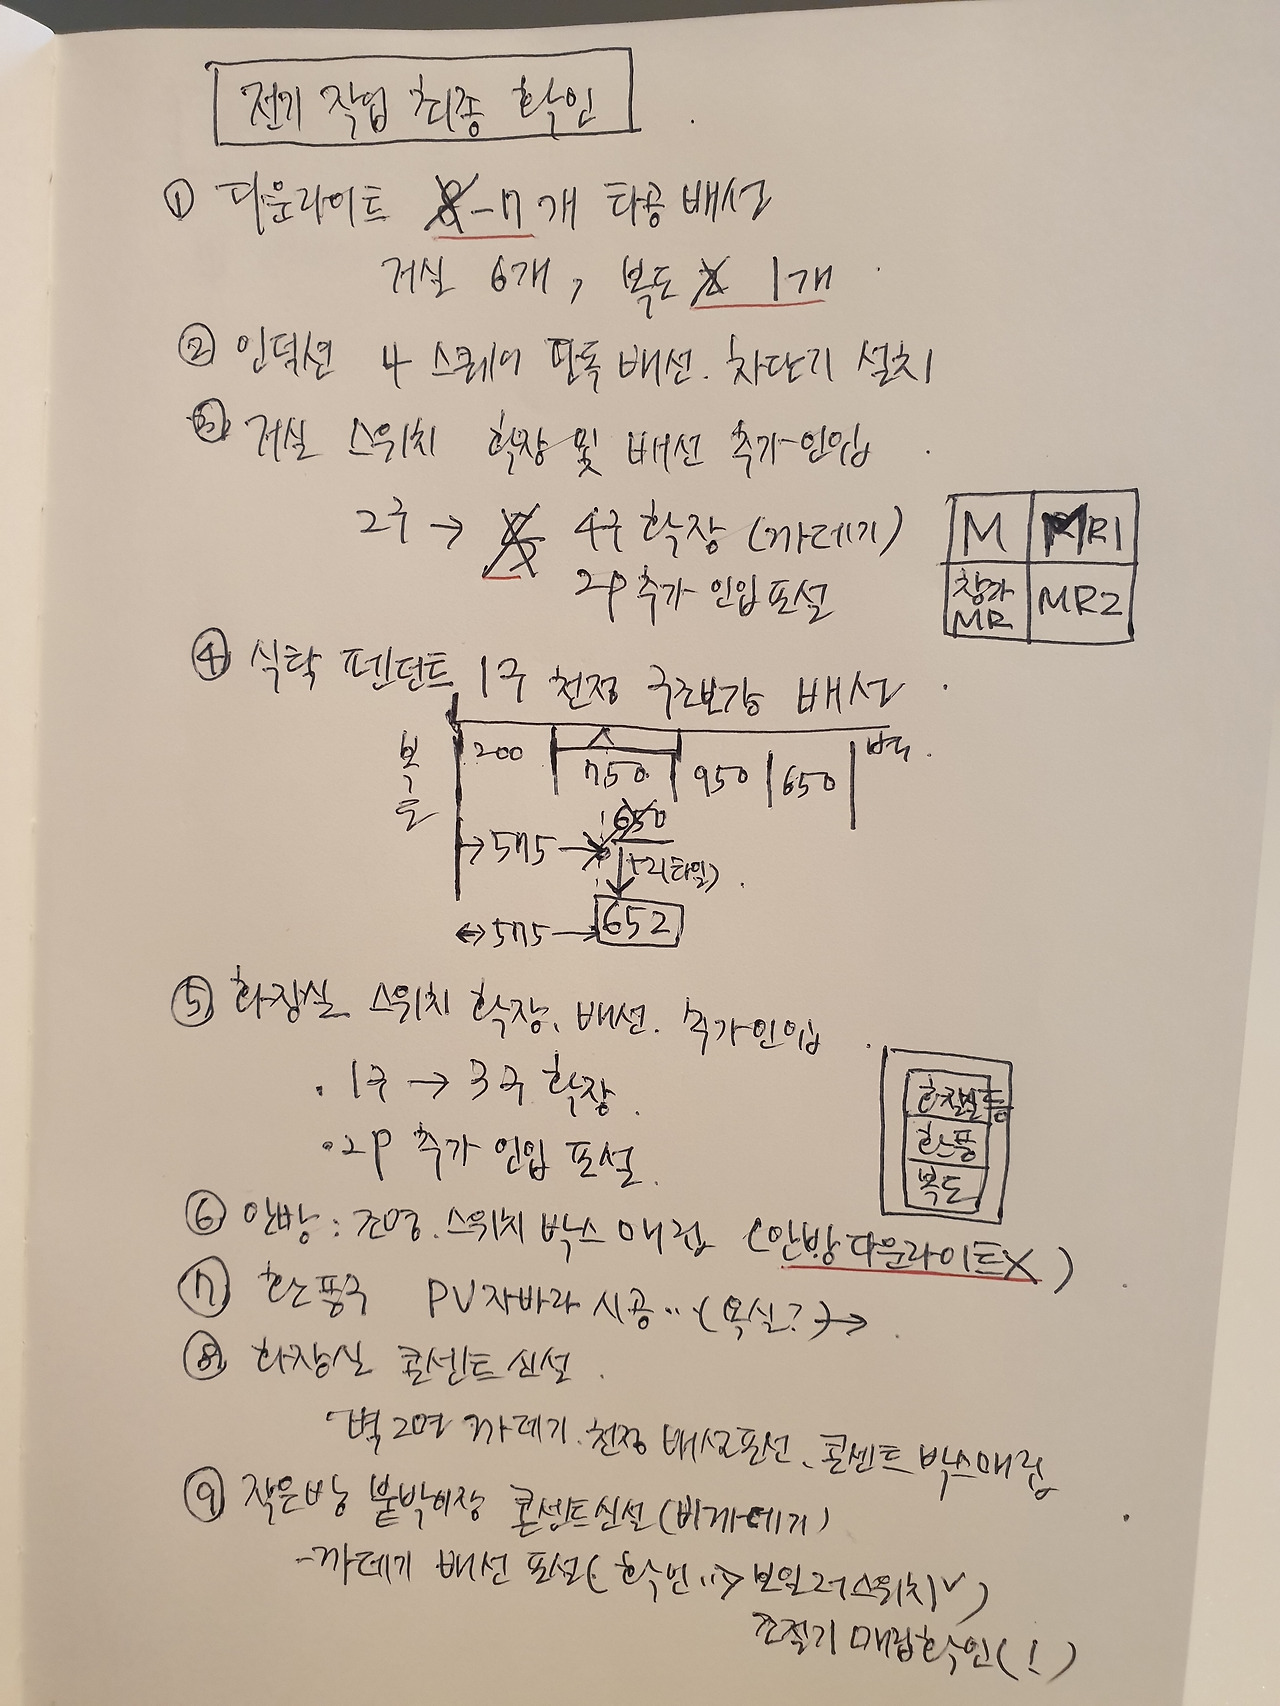 전기 작업 최종 확인
① 다운라이트 8-7개 타공 배선
거실 6개, 복도 2 1개
② 인덕션 4스퀘어 단독 배선. 차단기 설치
③ 거실 스위치 확장 및 배선 추가인입
2구 → 4구 확장 (까데기)
2P 추가 인입 포설
M MR1
창가 MR MR2
④ 식탁 펜던트 1구 천정 구조보강 배선
복도 200 750 950 650 벽
650
575
+2(타일)
575 652
⑤ 화장실 스위치 확장. 배선. 추가인입
· 1구 → 3구 확장
· 2P 추가 인입 포설
화장실등
환풍
복도
⑥ 안방 : 조명. 스위치 박스 매립 (안방 다운라이트X)
⑦ 환풍구 PV자바라 시공 ··(욕실?)→
⑧ 화장실 콘센트 신설
벽 2면 까데기. 천정 배선포선. 콘센트 박스매립
⑨ 작은방 붙박이장 콘센트신설(비까데기)
-까데기 배선 포설( 확인 ··> 보일러스위치✓)
조절기 매립확인(!)